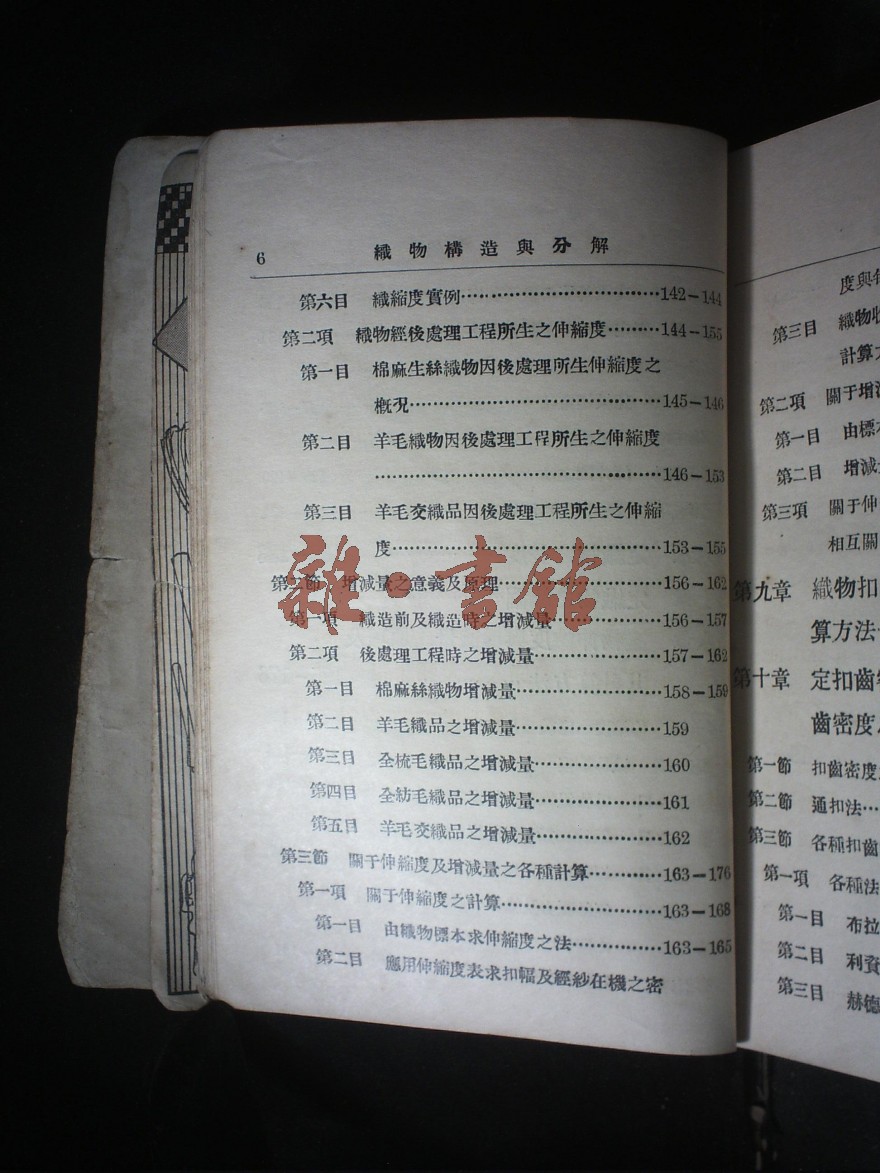 6 織物構造與分解
第六目 織縮度實例…………………………142—144
第二項 織物經後處理工程所生之伸縮度………144—155
第一目 棉麻生絲織物因後處理所生伸縮度之
概況………………………………145—146
第二目 羊毛織物因後處理工程所生之伸縮度
……………………………………146—153
第三目 羊毛交織品因後處理工程所生之伸縮
度…………………………………153—155
第二節 增減量之意義及原理……………………156—162
第一項 織造前及織造時之增減量……………156—157
第二項 後處理工程時之增減量………………157—162
第一目 棉麻絲織物增減量…………………158—159
第二目 羊毛織品之增減量…………………159
第三目 全梳毛織品之增減量………………160
第四目 全紡毛織品之增減量………………161
第五目 羊毛交織品之增減量………………162
第三節 關于伸縮度及增減量之各種計算………163—176
第一項 關于伸縮度之計算……………………163—168
第一目 由織物標本求伸縮度之法…………163—165
第二目 應用伸縮度表求扣幅及經紗在機之密
雜·書館
度與每
第三目 織物收
計算方
第二項 關于增減
第一目 由標本
第二目 增減量
第三項 關于伸
相互關
第九章 織物扣
算方法
第十章 定扣齒
齒密度
第一節 扣齒密度
第二節 通扣法…
第三節 各種扣齒
第一項 各種法
第一目 布拉
第二目 利資
第三目 赫德